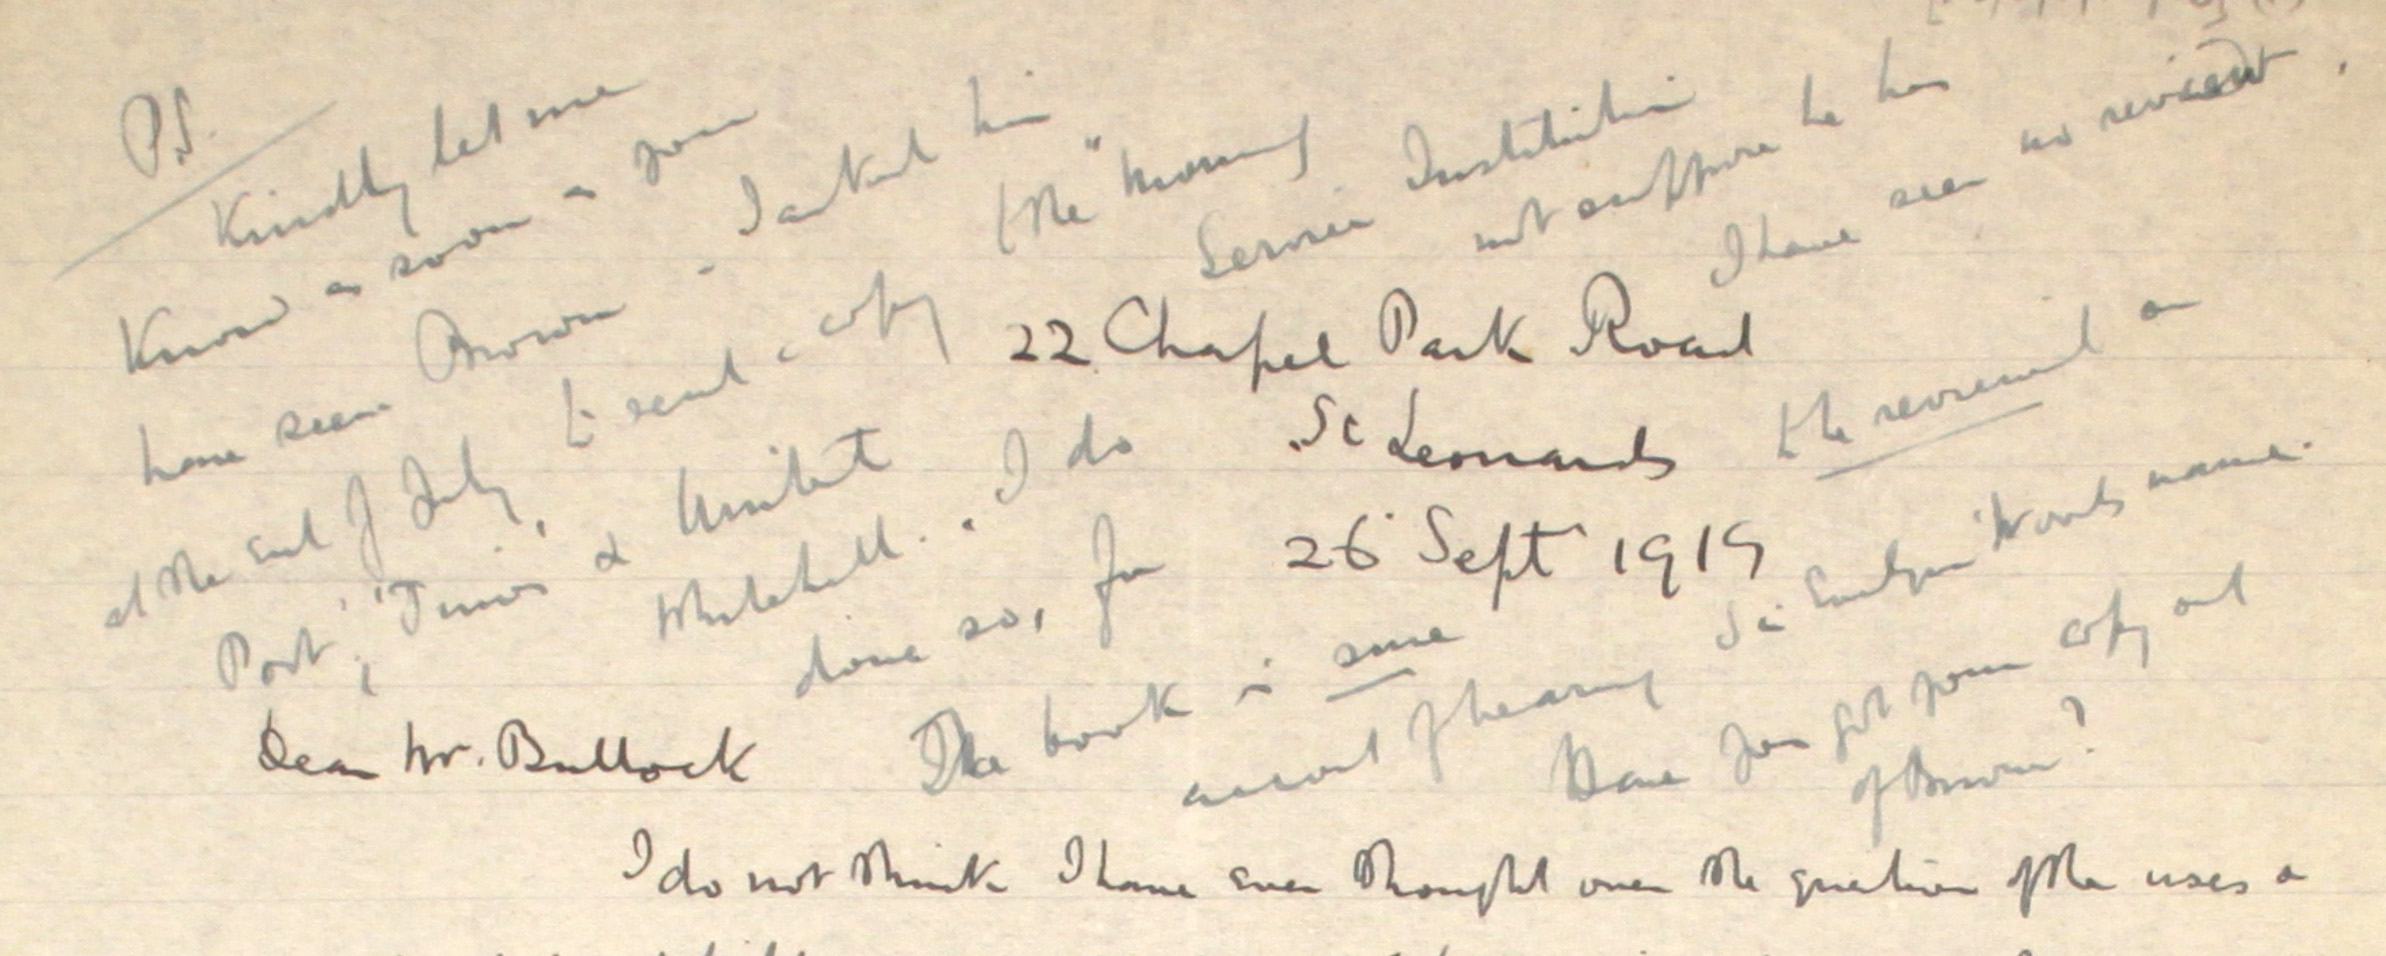 P.S.
Kindly let me
know as soon as you
have seen Brown - I asked him
at the end of July, to send a copy to the "Morning
Post"; 'Times' & United Service Institution
Whitehall". I do not suppose he has
done so, for I have seen no
The book is sure to be reviewed on
account of bearing Sir Evelyn Wood's name.
Have you got your copy out
of Brown?
22 Chapel Park Road
St Leonards
26 Sept 1919
Dear Mr. Bullock
I do not think I have ever thought over the question of the uses